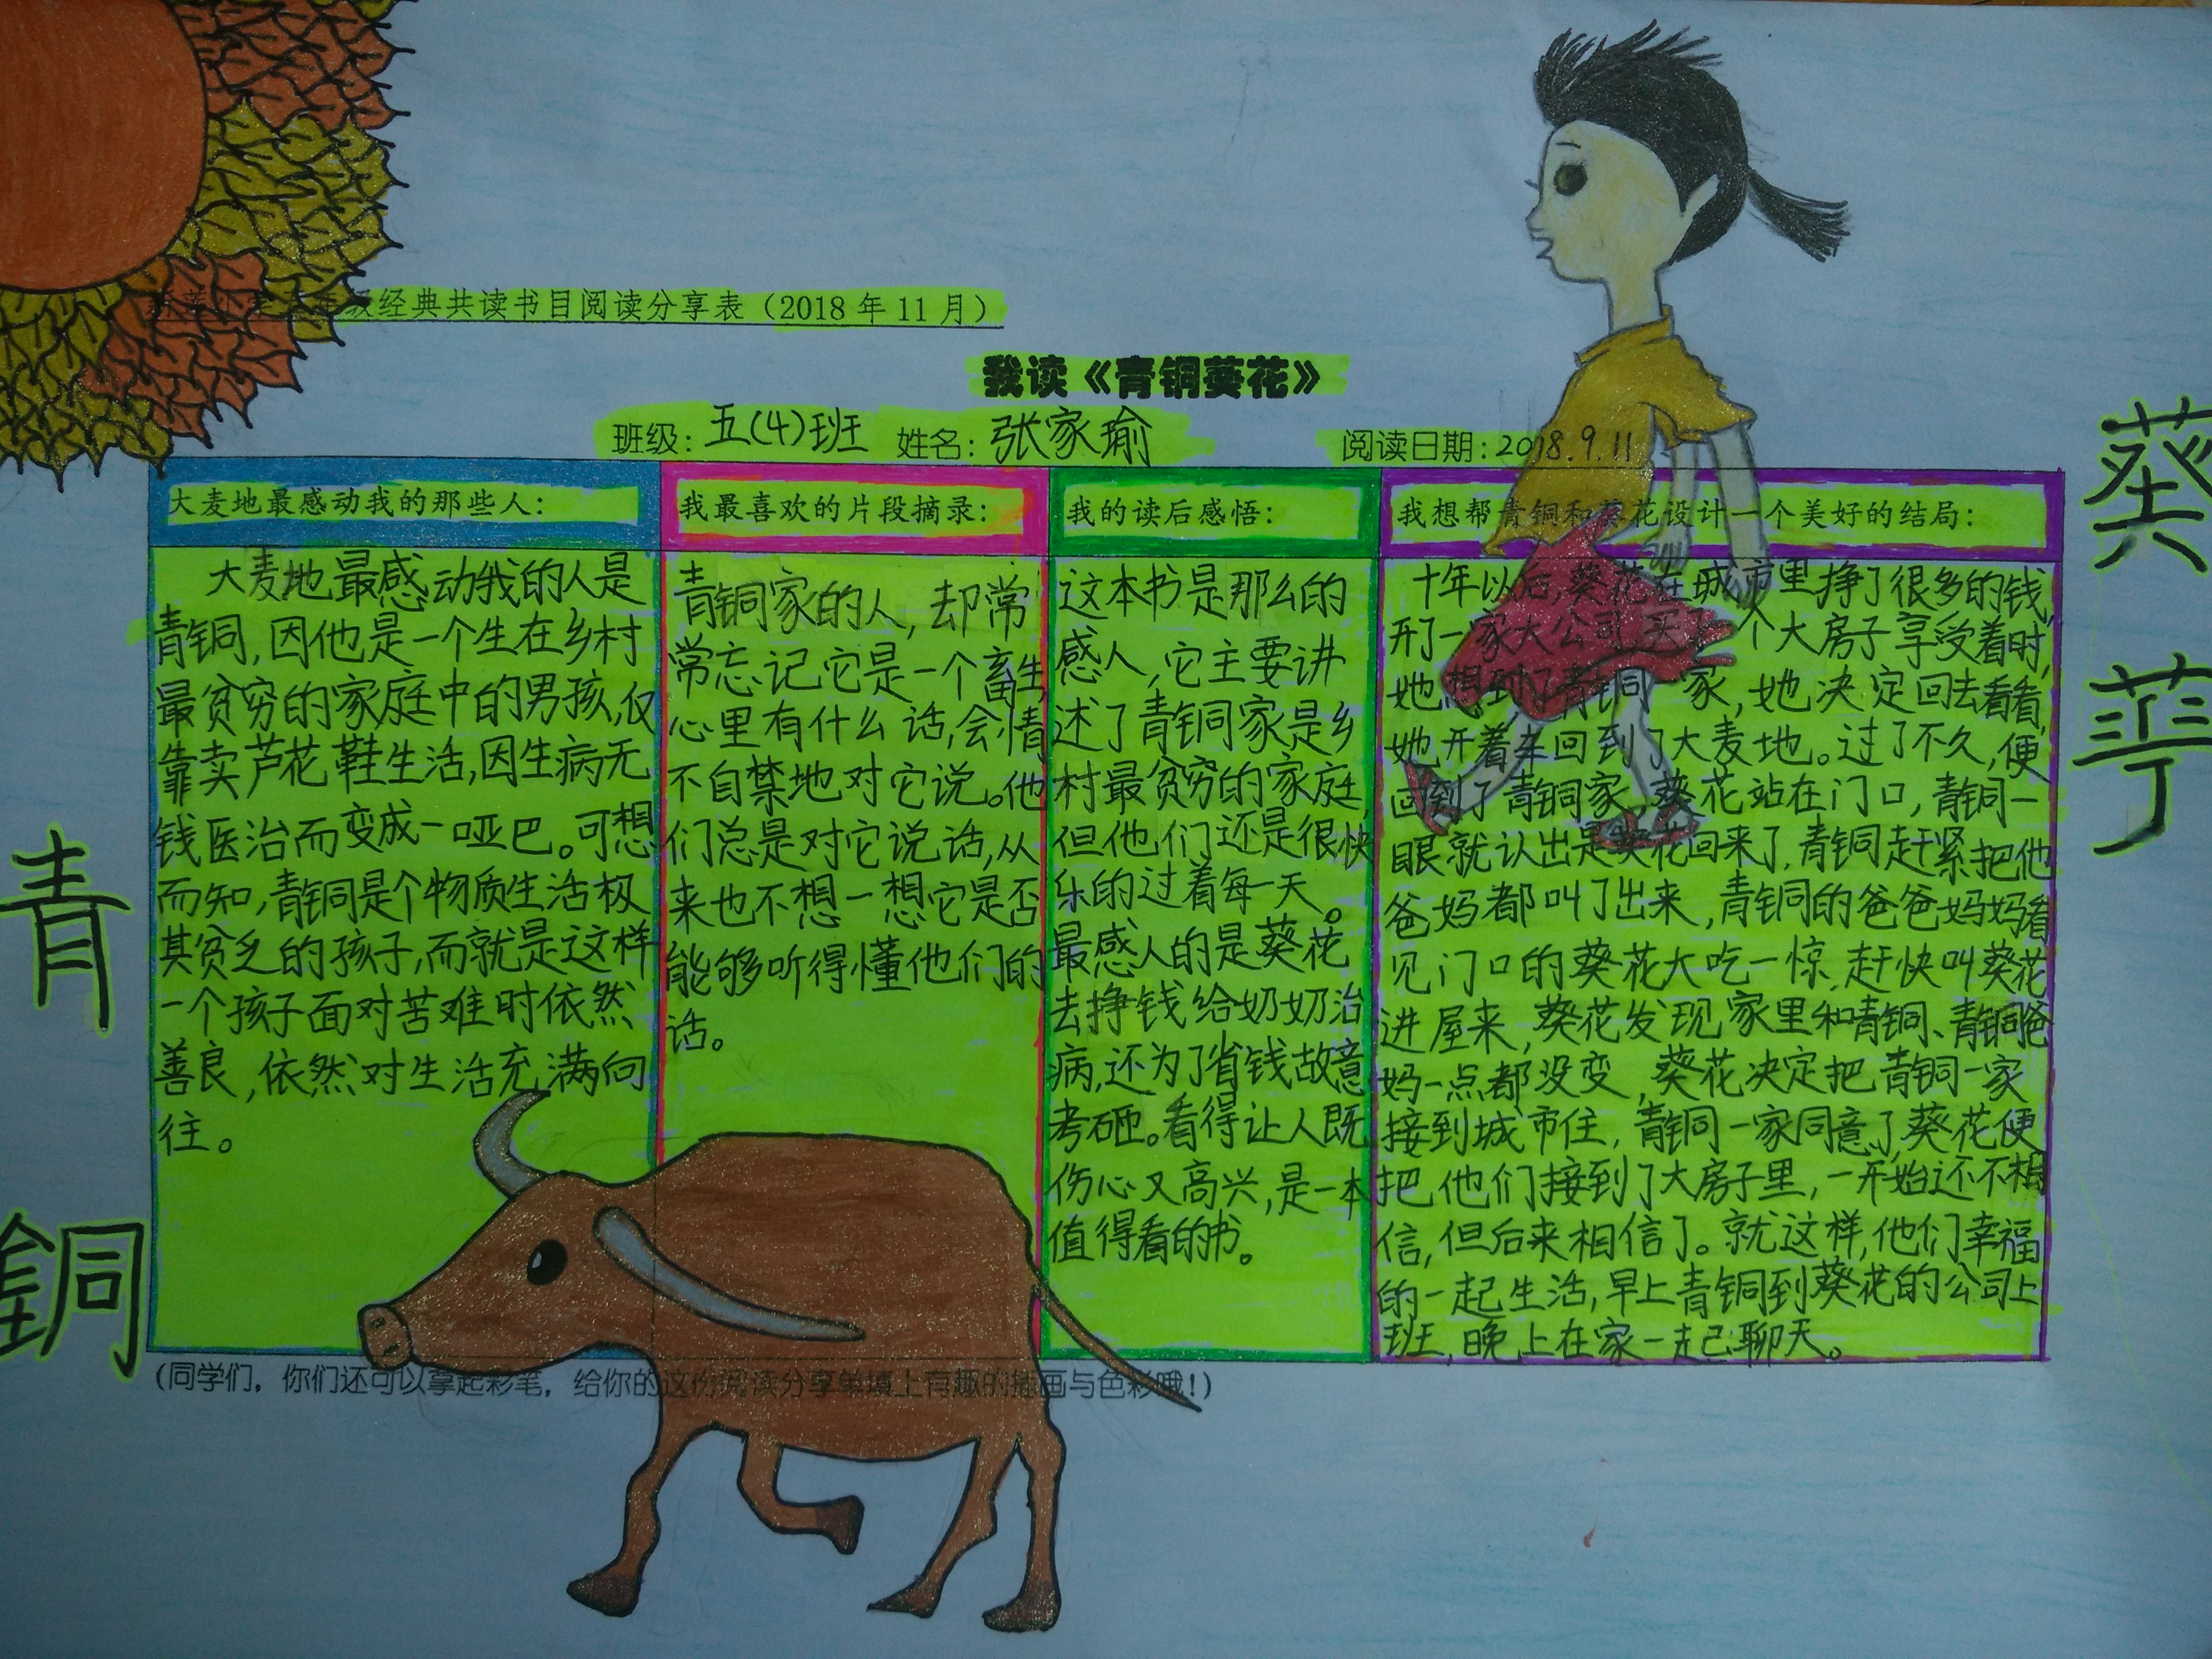 级经典共读书目阅读分享表（2018 年 11 月）
我读《青铜葵花》
班级：五(4)班 姓名：张家瑜 阅读日期：2018.9.11
大麦地最感动我的那些人：
大麦地最感动我的人是
青铜,因他是一个生在乡村
最贫穷的家庭中的男孩,仅
靠卖芦花鞋生活,因生病无
钱医治而变成一哑巴。可想
而知,青铜是个物质生活极
其贫乏的孩子,而就是这样
一个孩子面对苦难时依然
善良,依然对生活充满向
往。
我最喜欢的片段摘录：
青铜家的人,却常
常忘记它是一个畜生,
心里有什么话,会情
不自禁地对它说。他
们总是对它说话,从
来也不想一想它是否
能够听得懂他们的
话。
我的读后感悟：
这本书是那么的
感人,它主要讲
述了青铜家是乡
村最贫穷的家庭,
但他们还是很快
乐的过着每一天。
最感人的是葵花
去挣钱给奶奶治
病,还为了省钱故意
考砸。看得让人既
伤心又高兴,是一本
值得看的书。
我想帮青铜和葵花设计一个美好的结局：
十年以后,葵花在城市里挣了很多的钱,
开了一家大公司买了一个大房子享受着时,
她想到了青铜一家,她决定回去看看,
她开着车回到了大麦地。过了不久,便
回到了青铜家,葵花站在门口,青铜一
眼就认出是葵花回来了,青铜赶紧把他
爸妈都叫了出来,青铜的爸爸妈妈看
见门口的葵花大吃一惊,赶快叫葵花
进屋来,葵花发现家里和青铜、青铜爸
妈一点都没变,葵花决定把青铜一家
接到城市住,青铜一家同意了,葵花便
把他们接到了大房子里,一开始还不相
信,但后来相信了。就这样,他们幸福
的一起生活,早上青铜到葵花的公司上
班,晚上在家一起聊天。
(同学们，你们还可以拿起彩笔，给你的这份阅读分享单填上有趣的插画与色彩哦！)
青
铜
葵